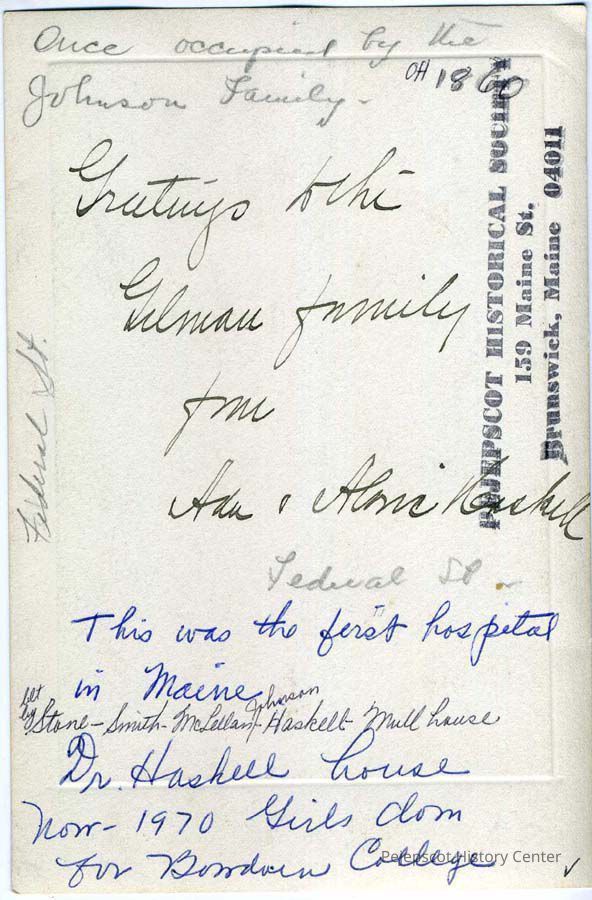 Once occupied by the
Johnson Family -
OH 1860
Greetings to the
Gilman family
from
Ada & Alaric Haskell
Federal St.
PEJEPSCOT HISTORICAL SOCIETY
159 Maine St.
Brunswick, Maine 04011
Federal St -
This was the first hospital
in Maine
Johnson
Stone - Smith - McLellan - Haskell - Mull house
Dr. Haskell house
Now - 1970 Girls dom
for Bowdoin College
Pejepscot History Center